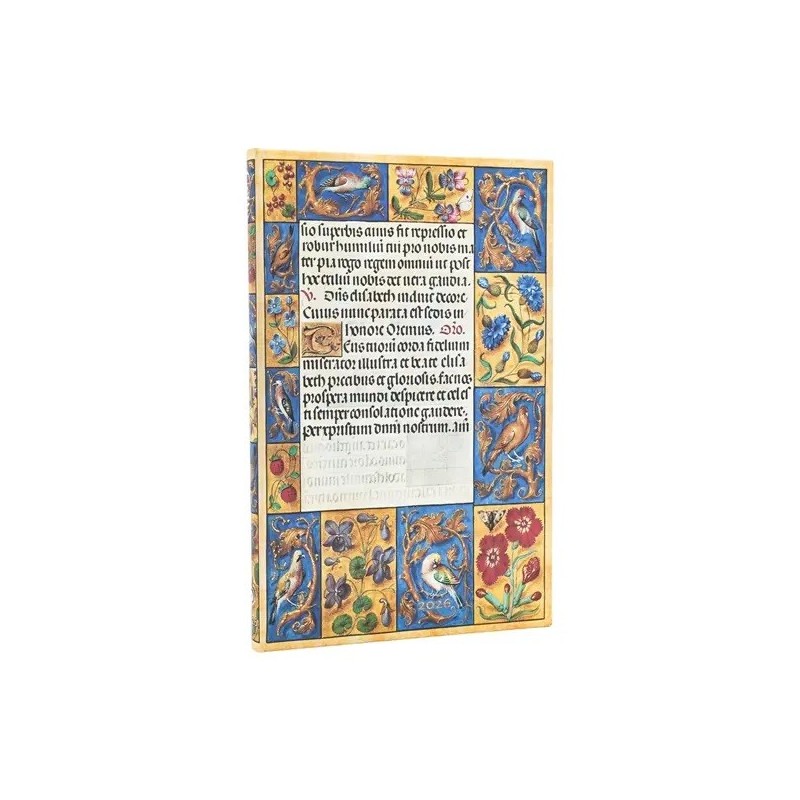 sio superbis aliis fit repressio et
robur humiliũ cui pro nobis ma
ter pia rego regem omniũ ut post
hoc exiliũ nobis det vera gaudia.
V. Dñs elisabeth induit decore.
Cuius nunc parata est sedis in
honore Oremus. Oro.
Deus tuorũ corda fidelium
miserator illustra et beate elisa
beth precibus et gloriosis. fac nos
prospera mundi despicere et celes
ti semper consolatione gaudere.
Per xpristum dnm nostrum. am
2026